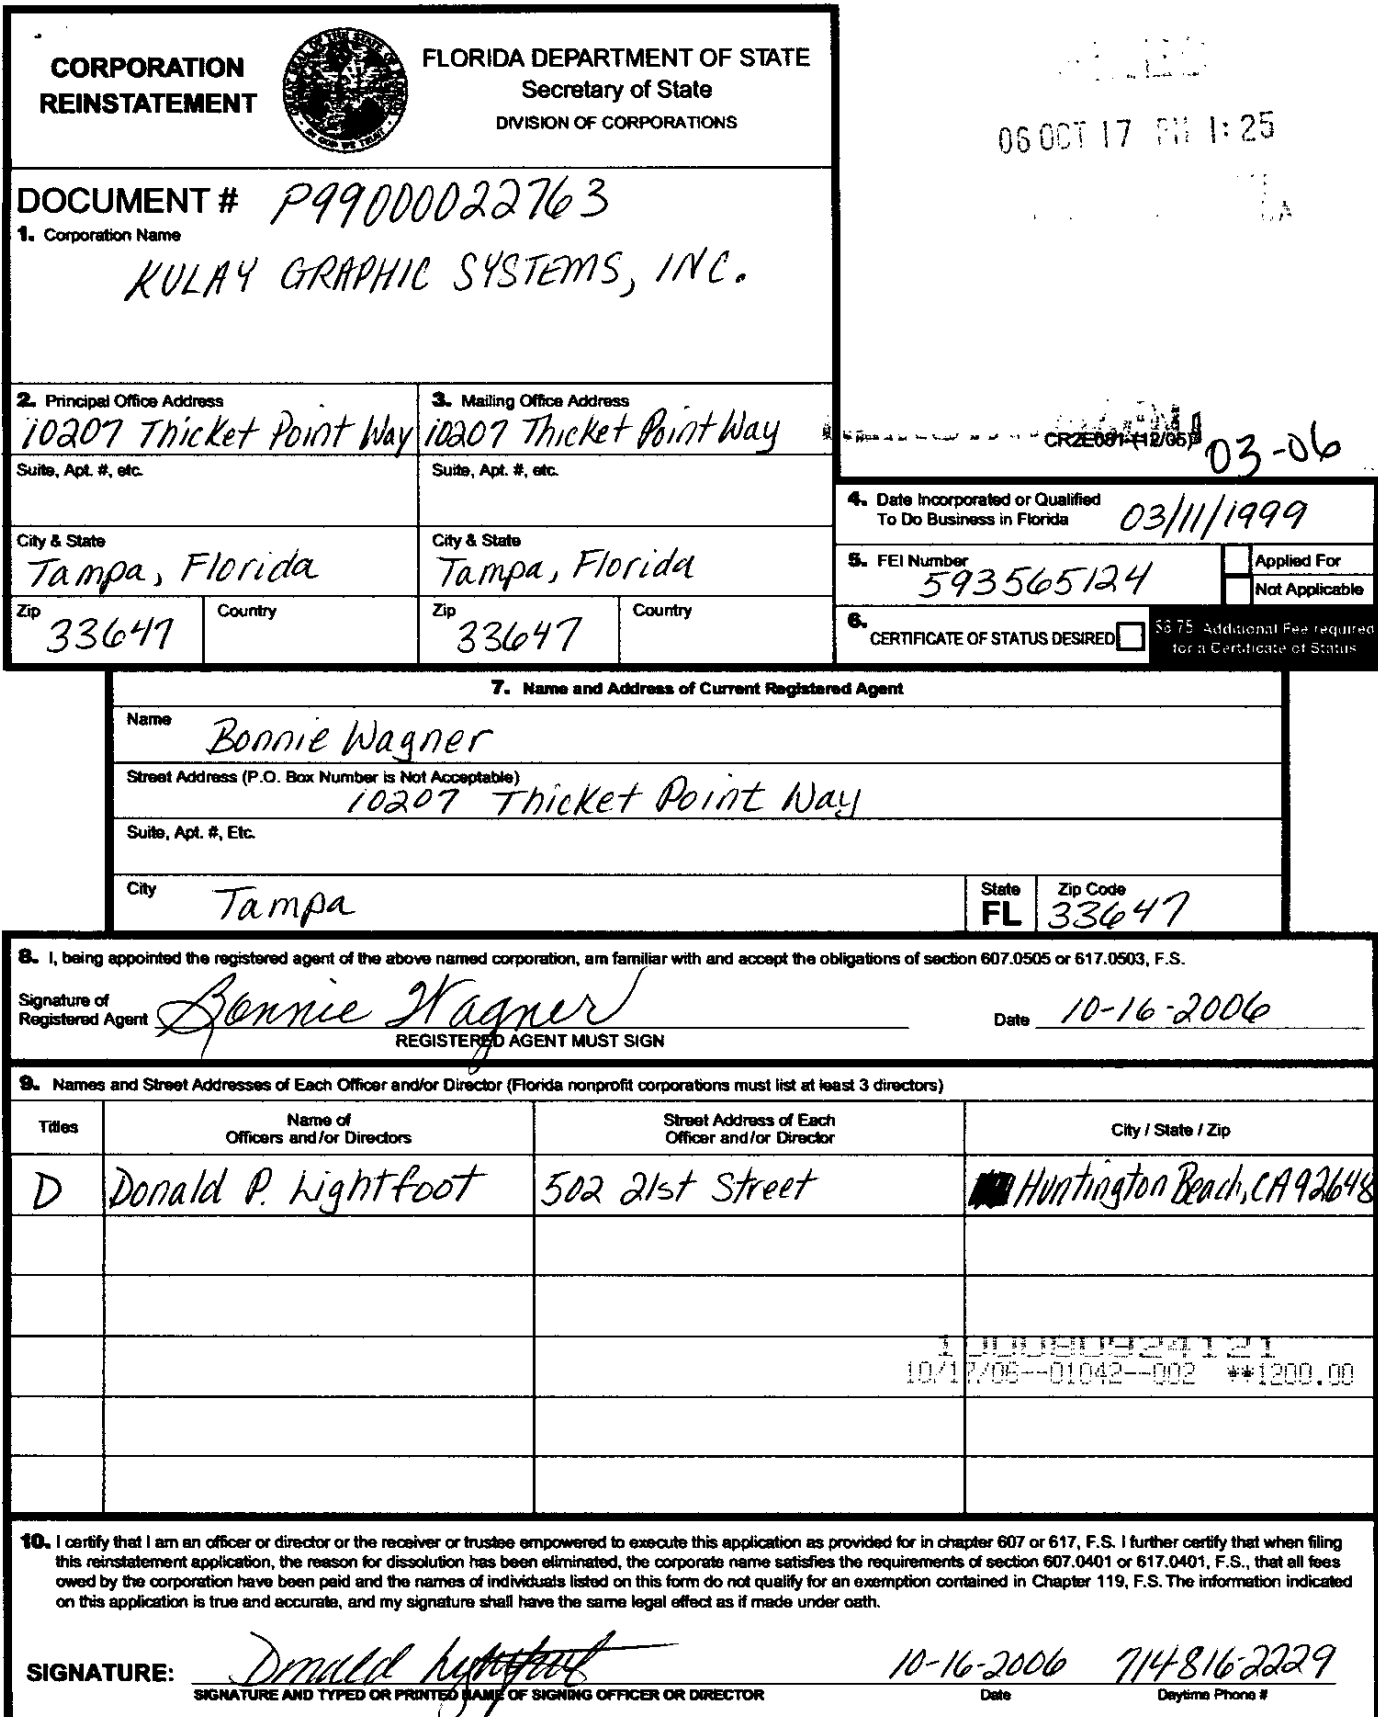 CORPORATION
REINSTATEMENT
FLORIDA DEPARTMENT OF STATE
Secretary of State
DIVISION OF CORPORATIONS
06 OCT 17 PM 1:25
DOCUMENT # P99000022763
1. Corporation Name
KULAY GRAPHIC SYSTEMS, INC.
2. Principal Office Address
10207 Thicket Point Way
3. Mailing Office Address
10207 Thicket Point Way
CR2E081 (12/05)
03-06
Suite, Apt. #, etc.
Suite, Apt. #, etc.
4. Date Incorporated or Qualified
To Do Business in Florida
03/11/1999
City & State
Tampa, Florida
City & State
Tampa, Florida
5. FEI Number
593565124
Applied For
Not Applicable
Zip
33647
Country
Zip
33647
Country
6.
CERTIFICATE OF STATUS DESIRED
$8.75 Additional Fee required
for a Certificate of Status
7. Name and Address of Current Registered Agent
Name
Bonnie Wagner
Street Address (P.O. Box Number is Not Acceptable)
10207 Thicket Point Way
Suite, Apt. #, Etc.
City
Tampa
State
FL
Zip Code
33647
8. I, being appointed the registered agent of the above named corporation, am familiar with and accept the obligations of section 607.0505 or 617.0503, F.S.
Signature of
Registered Agent
Bonnie Wagner
Date 10-16-2006
REGISTERED AGENT MUST SIGN
9. Names and Street Addresses of Each Officer and/or Director (Florida nonprofit corporations must list at least 3 directors)
Titles
Name of
Officers and/or Directors
Street Address of Each
Officer and/or Director
City / State / Zip
D
Donald P. Lightfoot
502 21st Street
Huntington Beach, CA 92648
100080924121
10/17/06--01042--002 **1200.00
10. I certify that I am an officer or director or the receiver or trustee empowered to execute this application as provided for in chapter 607 or 617, F.S. I further certify that when filing
this reinstatement application, the reason for dissolution has been eliminated, the corporate name satisfies the requirements of section 607.0401 or 617.0401, F.S., that all fees
owed by the corporation have been paid and the names of individuals listed on this form do not qualify for an exemption contained in Chapter 119, F.S. The information indicated
on this application is true and accurate, and my signature shall have the same legal effect as if made under oath.
SIGNATURE: Donald Lightfoot
10-16-2006
714816-2229
SIGNATURE AND TYPED OR PRINTED NAME OF SIGNING OFFICER OR DIRECTOR
Date
Daytime Phone #